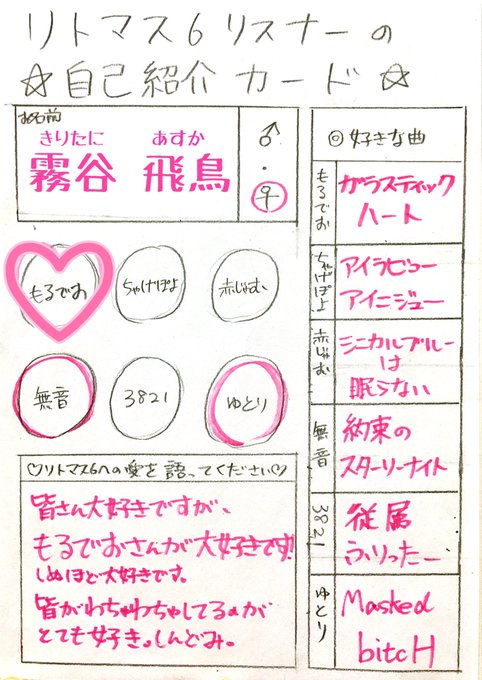 リトマス6リスナーの
☆自己紹介カード☆
お名前
きりたに あすか
霧谷 飛鳥
♂
・
♀
もるでお
ちゃげぽよ
赤じゃむ
無音
3821
ゆとり
♡リトマス6への愛を語ってください♡
皆さん大好きですが、
もるでおさんが大好きです!!
しぬほど大好きです。
皆がわちゃわちゃしてるのが
とても好き。しんどみ。
◎好きな曲
もるでお
ガラスティック
ハート
ちゃげぽよ
アイラビュー
アイニジュー
赤じゃむ
シニカルブルー
は
眠らない
無音
約束の
スターリーナイト
3821
従属
ふりったー
ゆとり
Masked
bitcH